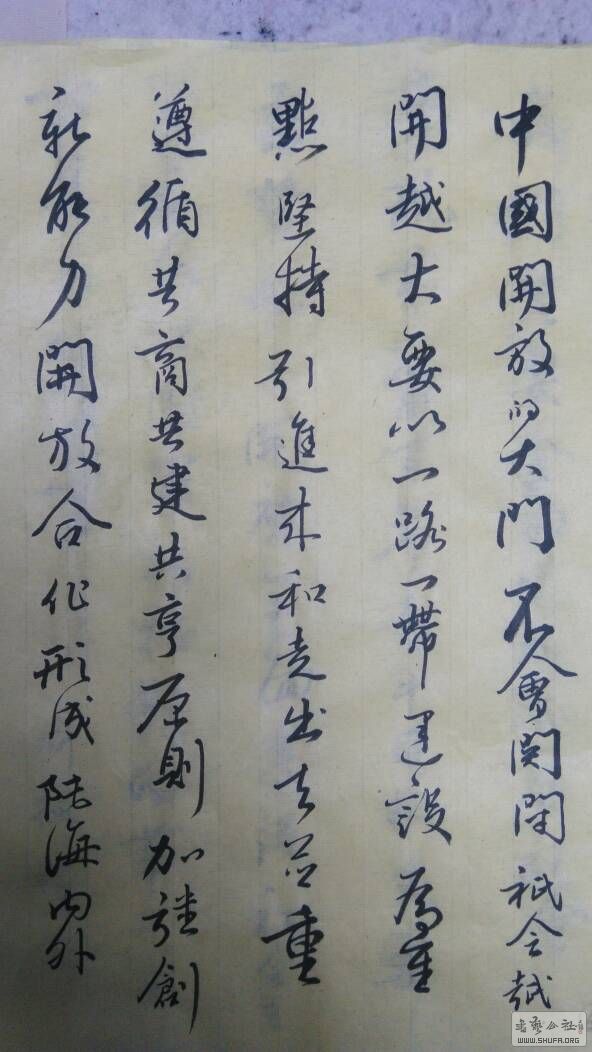 中國開放的大門不會関閉祇会越
開越大要以一路一帶建設為重
點堅持引進来和走出去並重
遵循共商共建共享原則加強創
新能力開放合作形成陸海内外
书艺公社
WWW.SHUFA.ORG